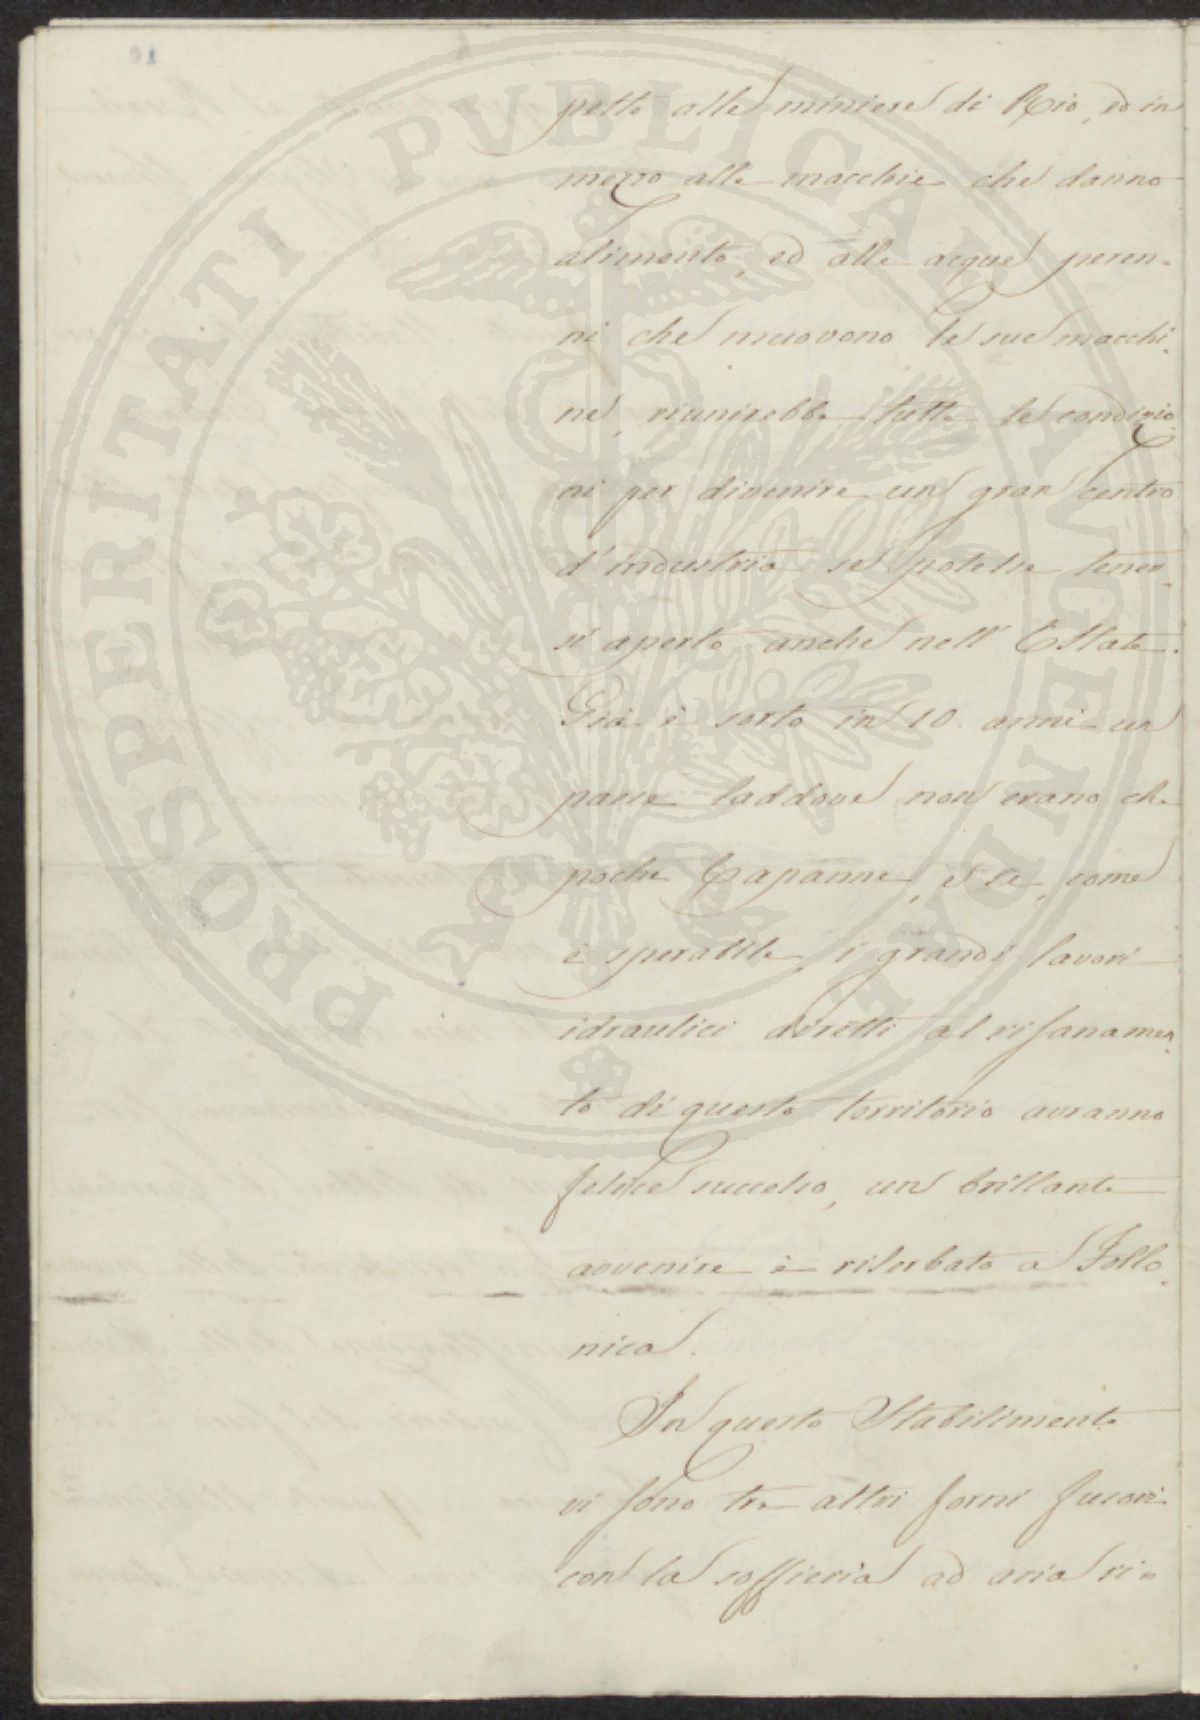 petto alle miniere di Rio, ed in
mezzo alle macchie che danno
alimento, ed alle acque peren-
ni che muovono le sue macchi-
ne, riunirebbe tutte le condizio-
ni per divenire un gran centro
d'industria se potesse tener-
si aperto anche nell'Estate.
Già è sorto in 10. anni un
paese laddove non erano che
poche Capanne, e se, come
è sperabile, i grandi lavori
idraulici diretti al risanamen-
to di questo territorio avranno
felice successo, un brillante
avvenire è riserbato a Follo-
nica.
In questo Stabilimento
vi sono tre altri forni fusori
con la soffieria ad aria ri-
PROSPERITATI PVBLICAE AVGENDAE